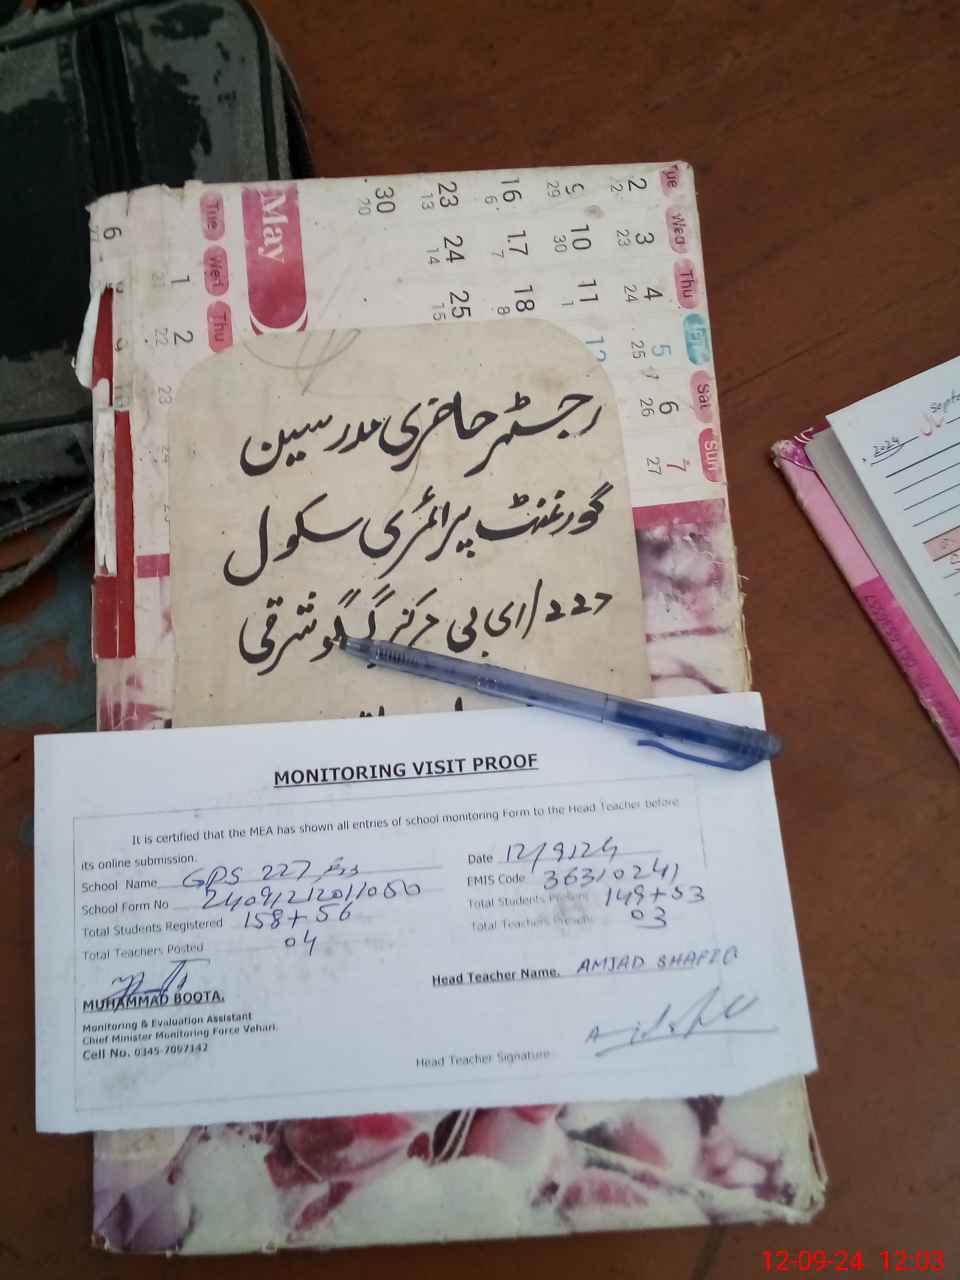 Tue Wed Thu Sat Sun
2 3 4 5 6 7
22 23 24 25 26 27
9 10 11 12
29 30 1
16 17 18
6 7 8
23 24 25
13 14 15
30
20
May
Tue Wed Thu
1 2
21 22 23
6
رجسٹر حاضری مدرسین
گورنمنٹ پرائمری سکول
227/ای بی مرکز گگو شرقی
2024
MONITORING VISIT PROOF
It is certified that the MEA has shown all entries of school monitoring Form to the Head Teacher before
its online submission.
School Name GPS 227
Date 12/9/24
School Form No
EMIS Code 36310241
Total Students Registered 158+56
Total Students Present 149+53
Total Teachers Posted 04
Total Teachers Present 03
Head Teacher Name. AMJAD SHAFIQ
MUHAMMAD BOOTA.
Monitoring & Evaluation Assistant
Chief Minister Monitoring Force Vehari.
Cell No. 0345-7097142
Head Teacher Signature
12-09-24 12:03